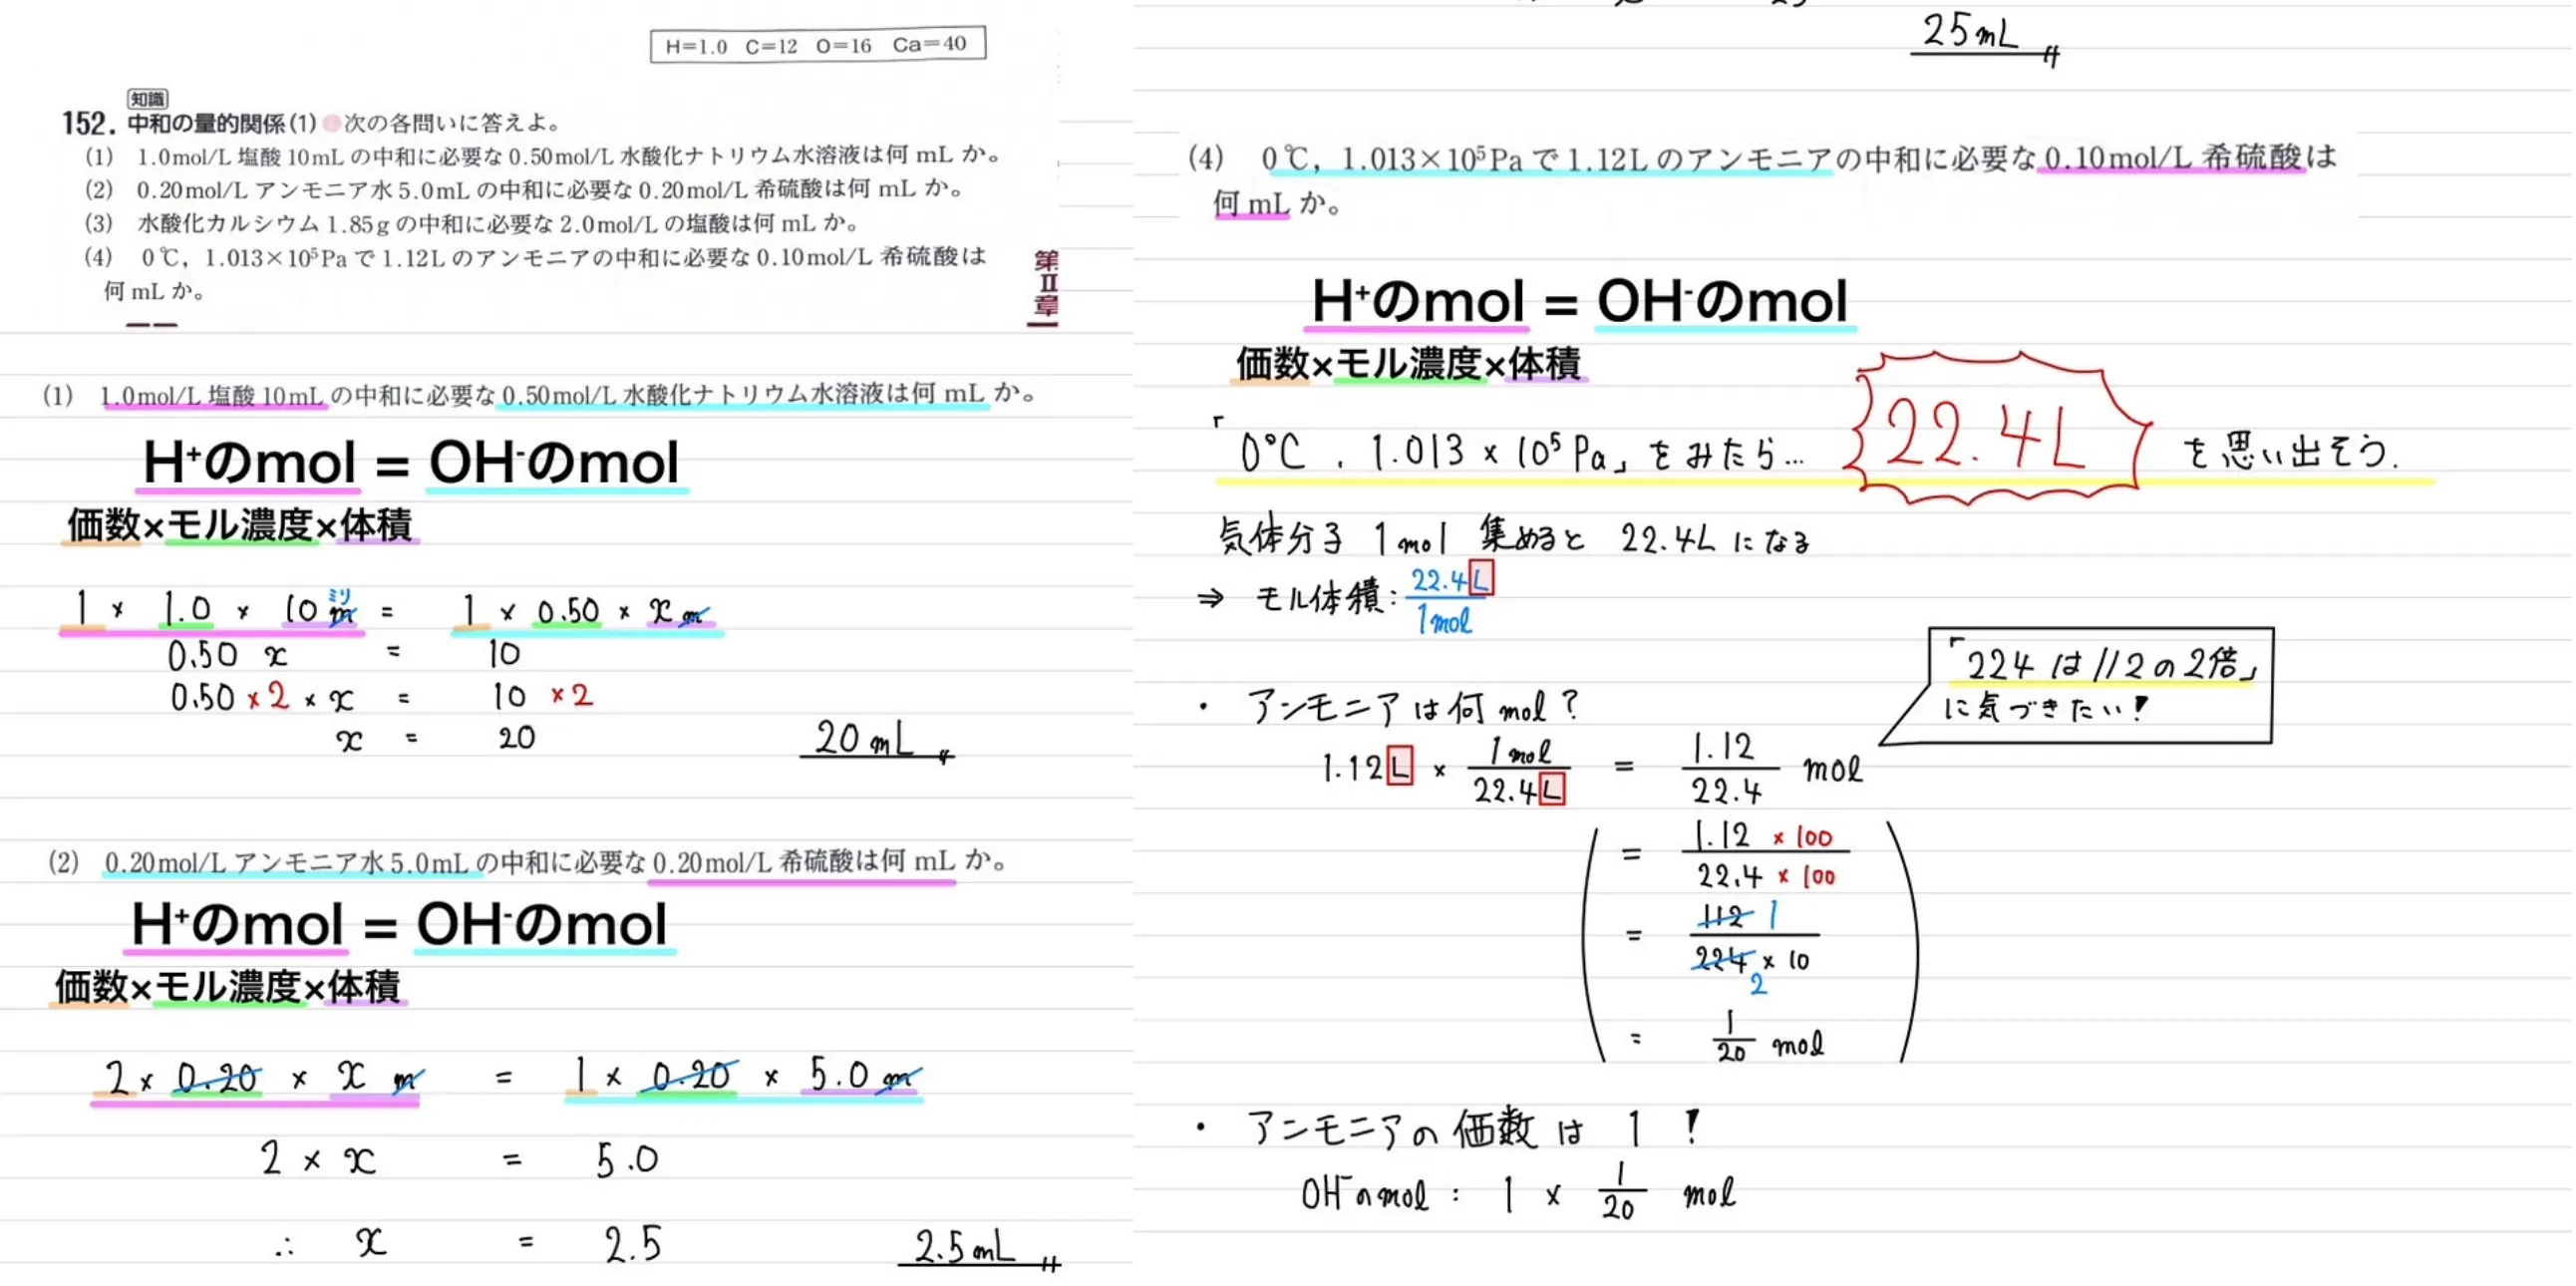 H=1.0 C=12 O=16 Ca=40
知識
152. 中和の量的関係(1) 次の各問いに答えよ。
(1) 1.0mol/L 塩酸 10mL の中和に必要な 0.50mol/L 水酸化ナトリウム水溶液は何 mL か。
(2) 0.20mol/L アンモニア水 5.0mL の中和に必要な 0.20mol/L 希硫酸は何 mL か。
(3) 水酸化カルシウム 1.85g の中和に必要な 2.0mol/L の塩酸は何 mL か。
(4) 0℃, 1.013×10⁵Pa で 1.12L のアンモニアの中和に必要な 0.10mol/L 希硫酸は
何 mL か。
第Ⅱ章
(1) 1.0mol/L 塩酸 10mL の中和に必要な 0.50mol/L 水酸化ナトリウム水溶液は何 mL か。
H⁺のmol = OH⁻のmol
価数×モル濃度×体積
ミリ
1 × 1.0 × 10 m = 1 × 0.50 × x m
0.50 x = 10
0.50 ×2 × x = 10 ×2
x = 20
20 mL
(2) 0.20mol/L アンモニア水 5.0mL の中和に必要な 0.20mol/L 希硫酸は何 mL か。
H⁺のmol = OH⁻のmol
価数×モル濃度×体積
2 × 0.20 × x m = 1 × 0.20 × 5.0 m
2 × x = 5.0
∴ x = 2.5
2.5 mL
25 mL
(4) 0℃, 1.013×10⁵Pa で 1.12L のアンモニアの中和に必要な 0.10mol/L 希硫酸は
何 mL か。
H⁺のmol = OH⁻のmol
価数×モル濃度×体積
「0℃ . 1.013 × 10⁵ Pa」をみたら… 22.4L を思い出そう.
気体分子 1mol 集めると 22.4L になる
⇒ モル体積: 22.4L / 1mol
「224 は 112 の 2倍」
に気づきたい!
・ アンモニアは何 mol ?
1.12L × 1mol / 22.4L = 1.12 / 22.4 mol
= 1.12 × 100 / 22.4 × 100
= 112 1 / 224 2 × 10
= 1/20 mol
・ アンモニアの価数は 1 !
OH⁻のmol : 1 × 1/20 mol